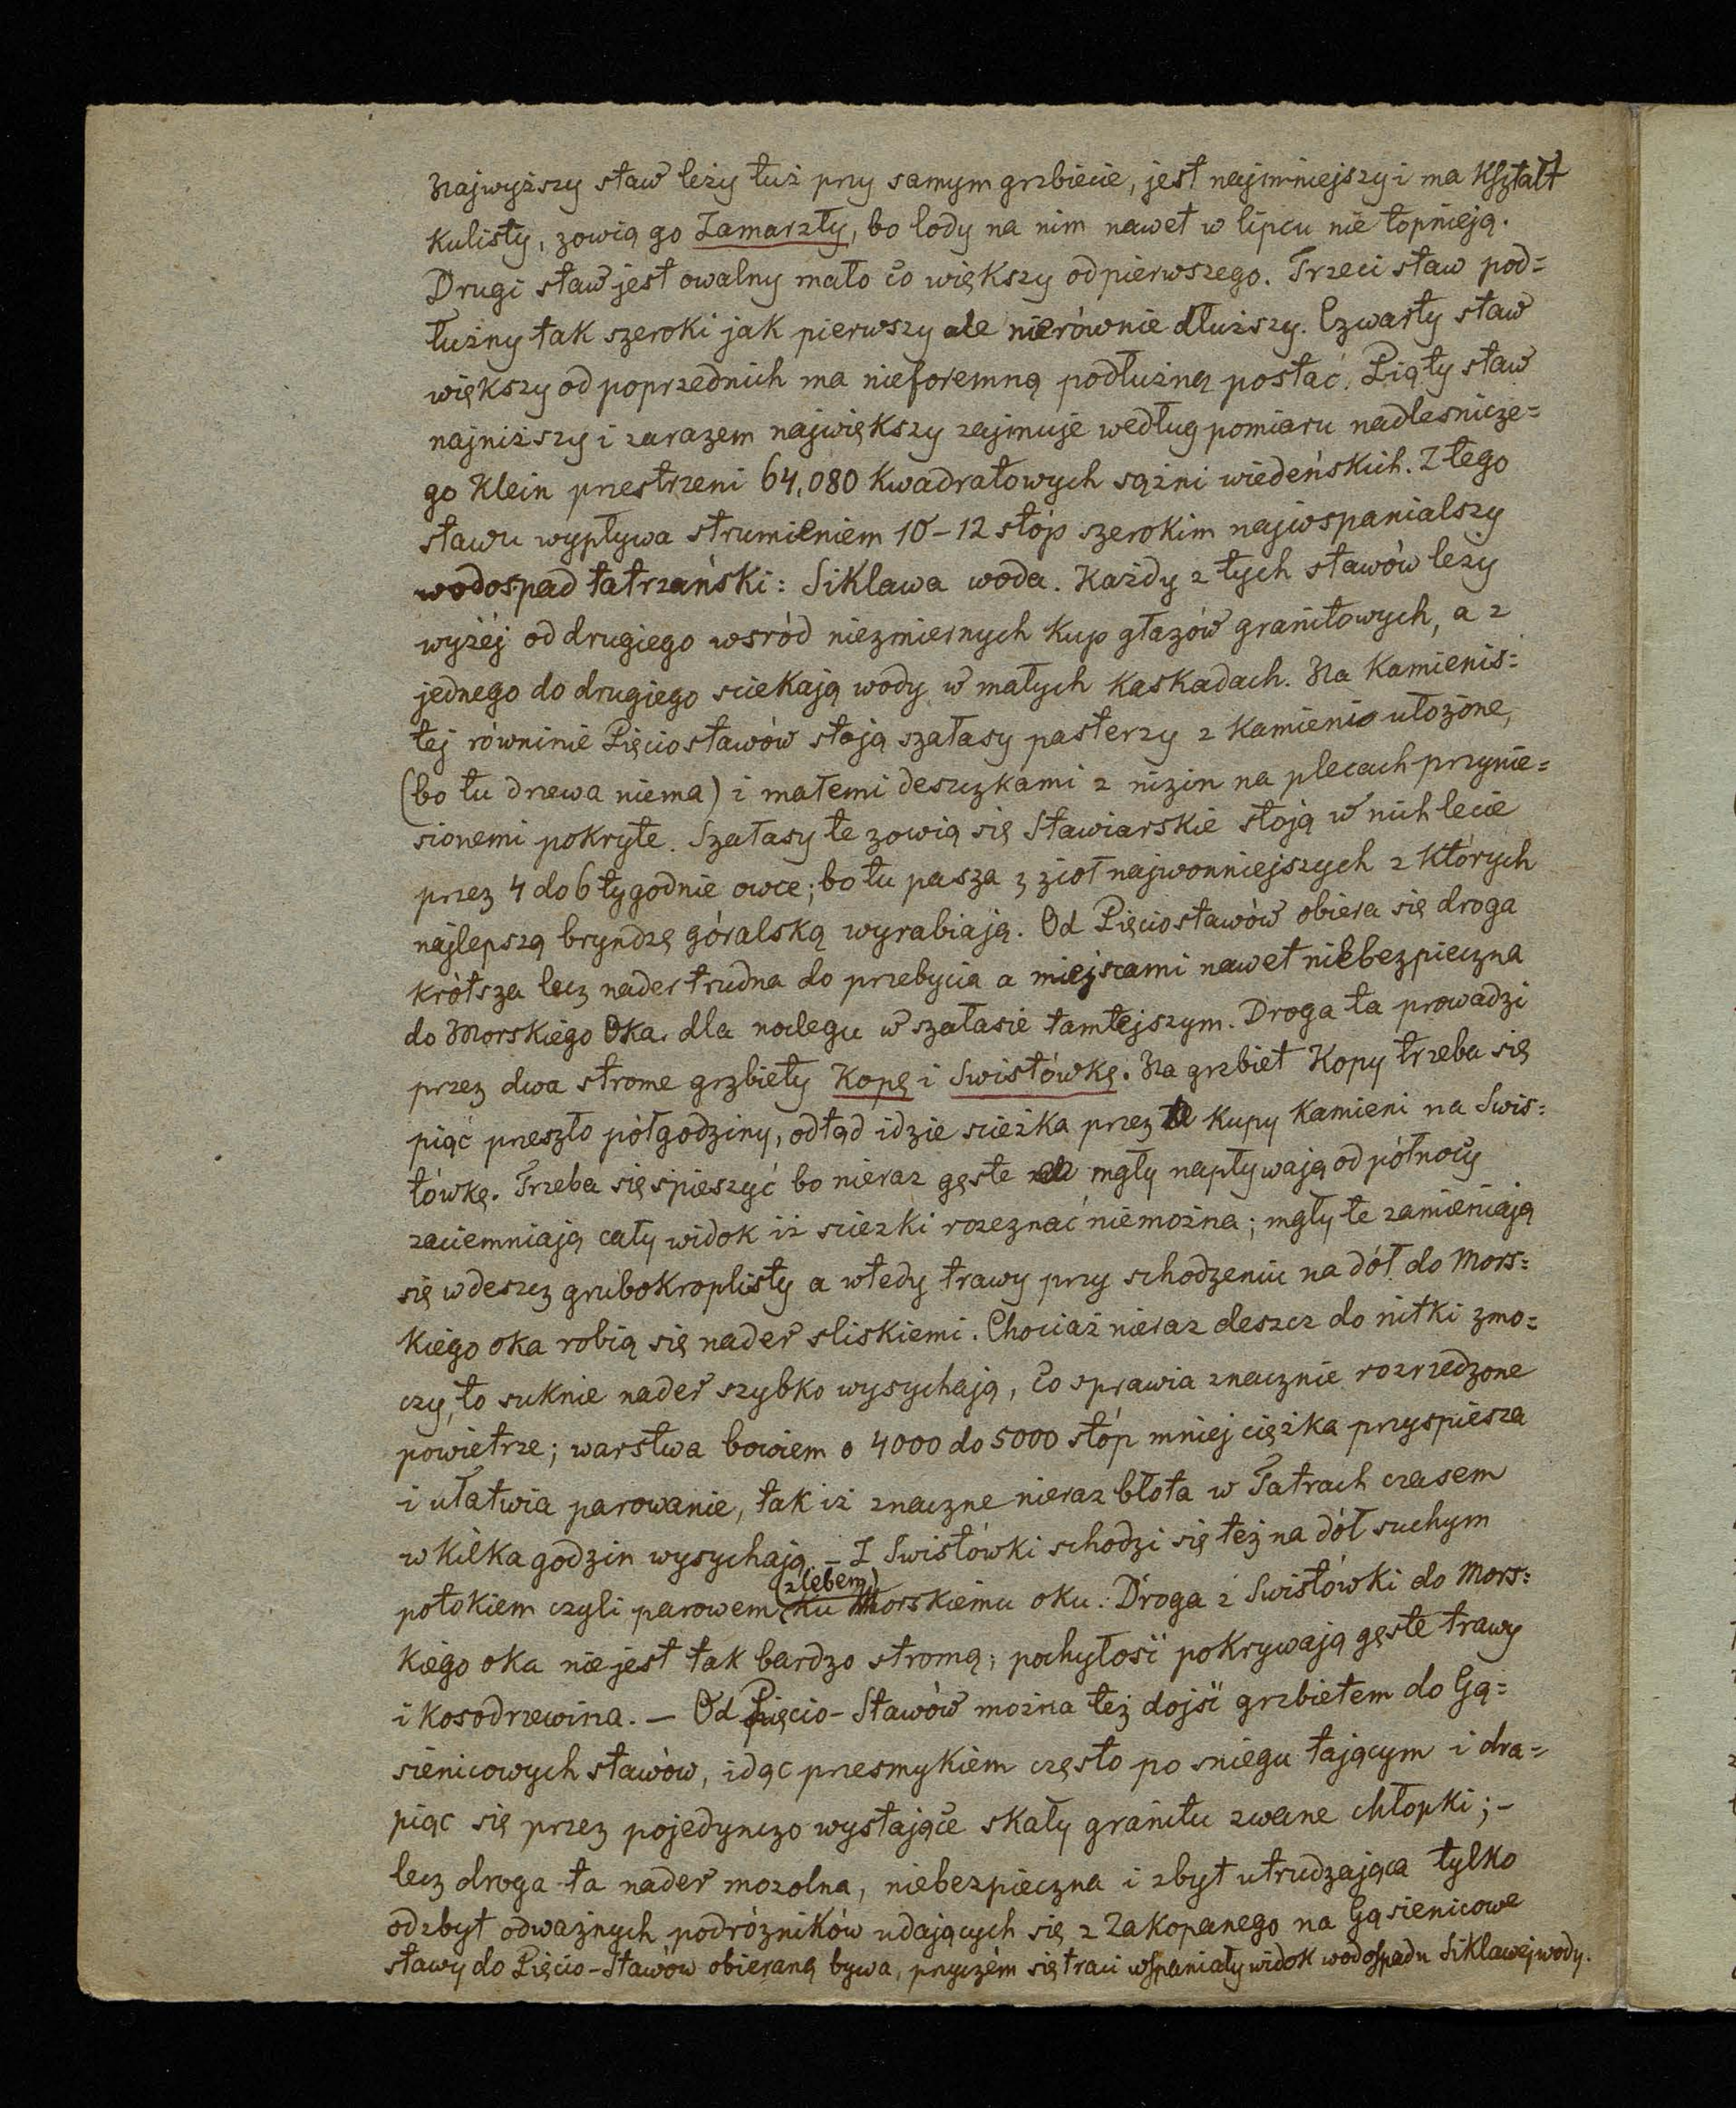 Najwyższy staw leży tuż przy samym grzbiecie, jest najmniejszy i ma kształt
kulisty, zowią go Zamarzły, bo lody na nim nawet w lipcu nie topnieją.
Drugi staw jest owalny mało co większy od pierwszego. Trzeci staw pod=
łużny tak szeroki jak pierwszy ale nierównie dłuższy. Czwarty staw
większy od poprzednich ma nieforemną podłużną postać. Piąty staw
najniższy i zarazem największy zajmuje według pomiaru nadlesnicze=
go Klein przestrzeni 64,080 kwadratowych sążni wiedeńskich. Z tego
stawu wypływa strumieniem 10-12 stóp szerokim najwspanialszy
wodospad tatrzański: Siklawa woda. Każdy z tych stawów leży
wyżéj od drugiego wsród niezmiernych kup głazów granitowych, a z
jednego do drugiego sciekają wody w małych kaskadach. Na kamienis=
tej równinie Pięciostawów stoją szałasy pasterzy z kamienia ułożone,
(bo tu drzewa niema) i małemi deszczkami z nizin na plecach przynie=
sionemi pokryte. Szałasy te zowią się Stawiarskie stoją w nich lecie
przez 4 do 6 tygodnie owce; bo tu pasza z zioł najwonniejszych z których
najlepszą bryndzę góralską wyrabiają. Od Pięciostawów obiera się droga
krótsza lecz nader trudna do przebycia a miejscami nawet niebezpieczna
do Morskiego Oka. dla noclegu w szałasie tamtejszym. Droga ta prowadzi
przez dwa strome grzbiety Kopę i Swistówkę. Na grzbiet Kopy trzeba się
piąć przeszło półgodziny, odtąd idzie scieżka przez te kupy kamieni na Swis=
tówkę. Trzeba się spieszyć bo nieraz gęste mgły napływają od północy
zaciemniają cały widok iż sciezki rozeznać niemożna; mgły te zamieniają
się w deszcz grubokroplisty a wtedy trawy przy schodzeniu na dół do Mors=
kiego oka robią się nader sliskiemi. Chociaż nieraz deszcz do nitki zmo=
czy, to suknie nader szybko wysychają, co sprawia znacznie rozrzedzone
powietrze; warstwa bowiem o 4000 do 5000 stóp mniej ciężka przyspiesza
i ułatwia parowanie, tak iż znaczne nieraz błota w Tatrach czasem
w kilka godzin wysychają. – Z Swistówki schodzi się też na dół suchym
(zlebem)
potokiem czyli parowem ku Morskiemu oku. Droga z Swistówki do Mors=
kiego oka nie jest tak bardzo stromą; pochyłość pokrywają gęste trawy
i kosodrzewina. – Od Pięcio-Stawów można też dojść grzbietem do Gą=
sienicowych stawów, idąc przesmykiem często po sniegu tającym i dra=
piąc się przez pojedynczo wystające skały granitu zwane chłopki; -
lecz droga ta nader mozolna, niebezpieczna i zbyt utrudzająca tylko
od zbyt odważnych podróżników udających się z Zakopanego na Gąsienicowe
stawy do Pięcio-Stawów obieraną bywa, przyczém się traci wspaniały widok wodospadu Siklawej wody.